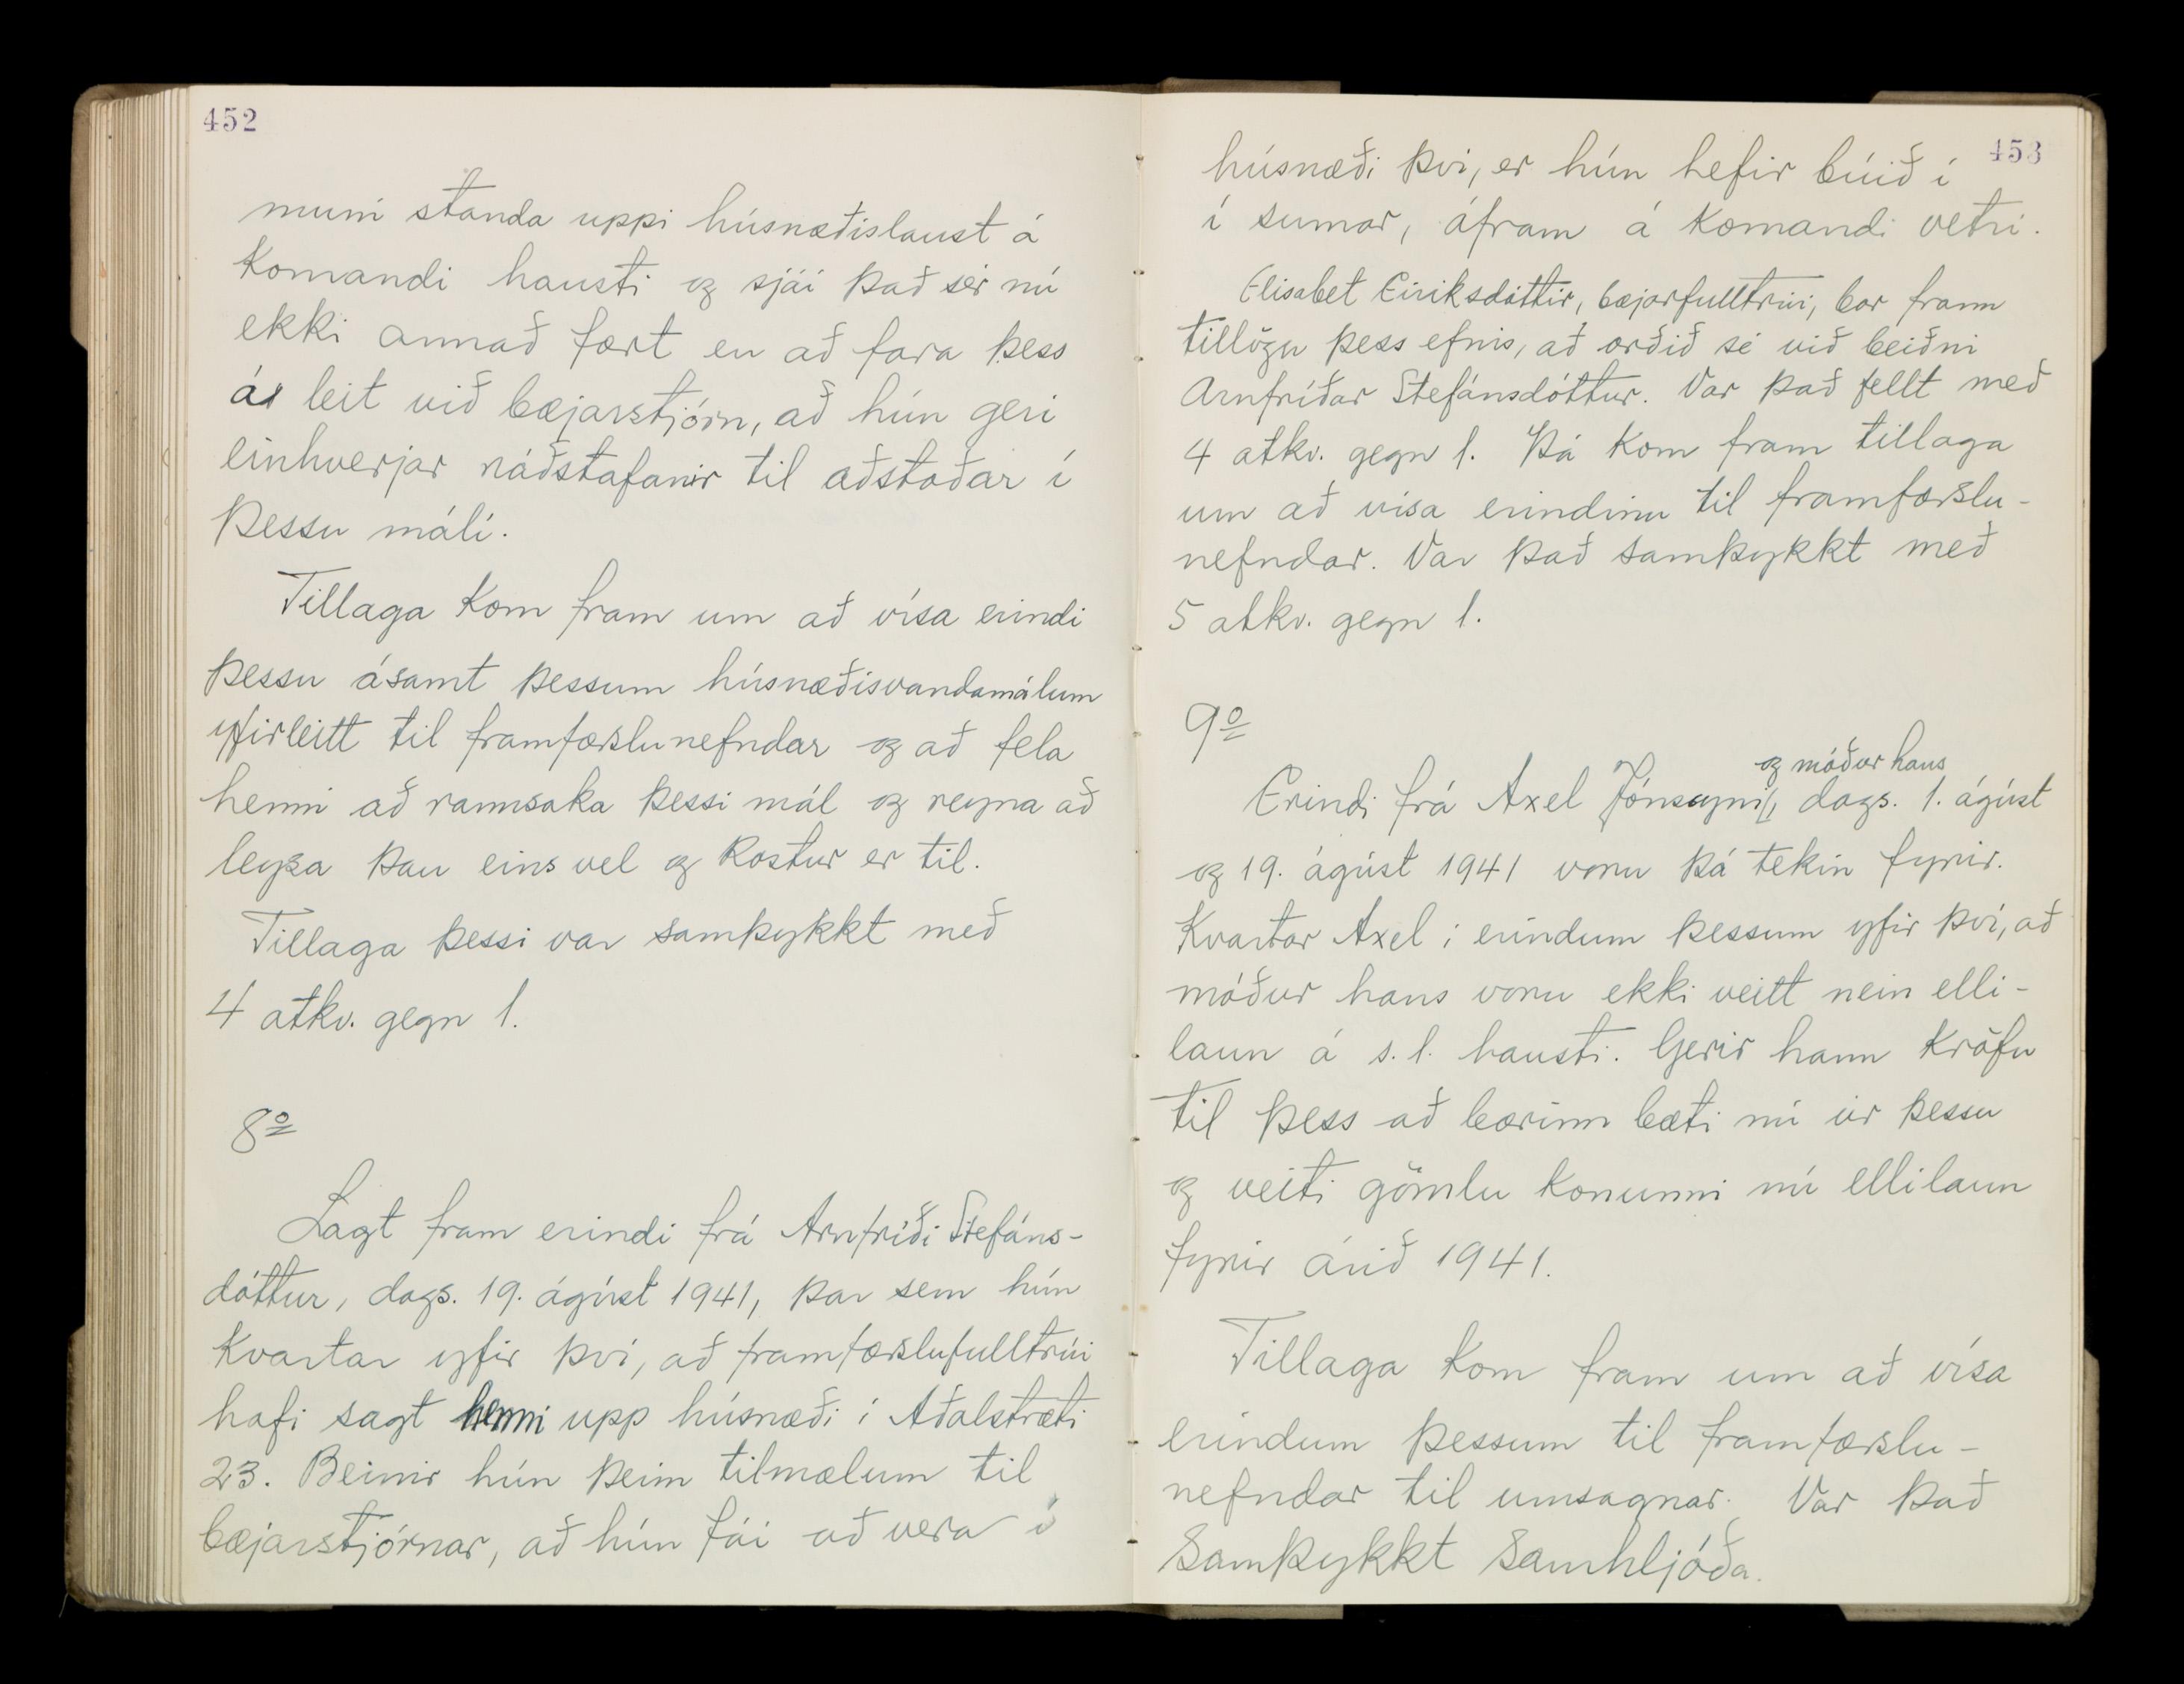 452
muni standa uppi húsnæðislaust á
komandi hausti og sjái það sér nú
ekki annað fært en að fara þess
á leit við bæjarstjórn, að hún geri
einhverjar ráðstafanir til aðstoðar í
þessu máli.
Tillaga kom fram um að vísa erindi
þessu ásamt þessum húsnæðisvandamálum
yfirleitt til framfærslunefndar og að fela
henni að rannsaka þessi mál og reyna að
leysa þau eins vel og kostur er til.
Tillaga þessi var samþykkt með
4 atkv. gegn 1.
8º
Lagt fram erindi frá Arnfríði Stefáns-
dóttur, dags. 19. ágúst 1941, þar sem hún
kvartar yfir því, að framfærslufulltrúi
hafi sagt henni upp húsnæði í Aðalstræti
23. Beinir hún þeim tilmælum til
bæjarstjórnar, að hún fái að vera í
453
húsnæði því, er hún hefir búið í
í sumar, áfram á komandi vetri.
Elisabet Eiríksdóttir, bæjarfulltrúi, bar fram
tillögu þess efnis, að orðið sé við beiðni
Arnfríðar Stefánsdóttur. Var það fellt með
4 atkv. gegn 1. Þá kom fram tillaga
um að vísa erindinu til framfærslu-
nefndar. Var það samþykkt með
5 atkv. gegn 1.
9º
og móður hans
Erindi frá Axel Jónssyni, dags. 1. ágúst
og 19. ágúst 1941 voru þá tekin fyrir.
Kvartar Axel í erindum þessum yfir því, að
móður hans voru ekki veitt nein elli-
laun á s.l. hausti. Gerir hann kröfu
til þess að bærinn bæti nú úr þessu
og veiti gömlu konunni nú ellilaun
fyrir árið 1941.
Tillaga kom fram um að vísa
erindum þessum til framfærslu-
nefndar til umsagnar. Var það
Samþykkt Samhljóða.